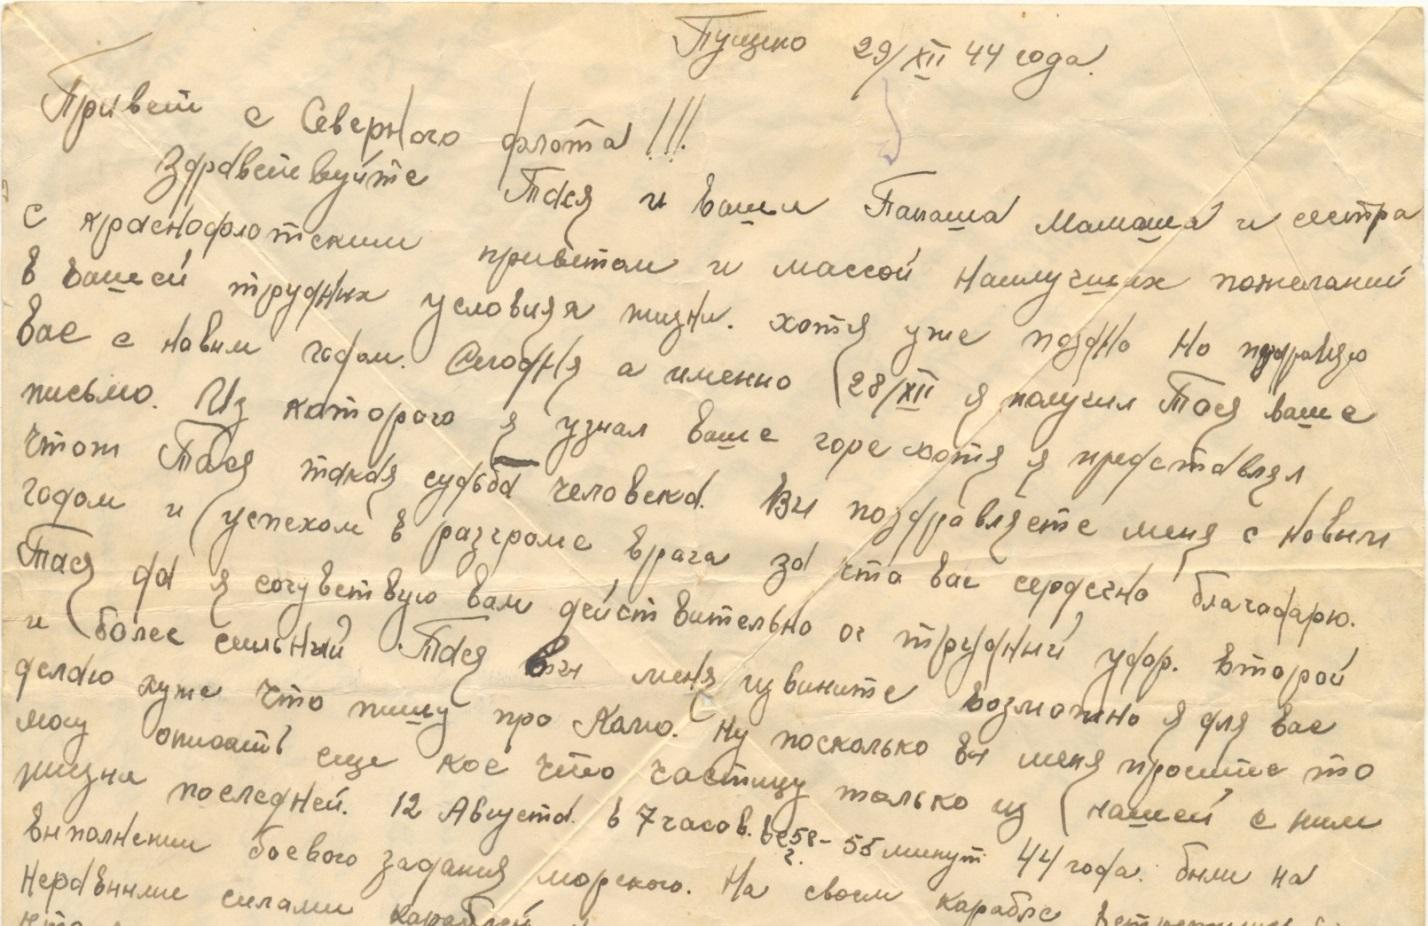 Пущено 29/XII 44 года.
Привет с Северного флота!!!
Здравствуйте Тася и ваши Папаша Мамаша и сестра
с краснофлотским приветом и массой наилучших пожеланий
в вашей трудных условия жизни. хотя уже поздно но поздравляю
вас с новым годом. Сегодня а именно (28/XII я получил Тася ваше
письмо. Из которого я узнал ваше горе хотя я представлял
чтож Тася такая судьба человека. Вы поздравляете меня с новым
годом и успехом в разгроме врага за что вас сердечно благадарю.
Тася да я сочувствую вам действительно ог трудный удар. второй
и более сильный. Тася вы меня извините возможно я для вас
делаю хуже что пишу про Колю. Ну посколько вы меня просите то
могу описать еще кое что частицу только из нашей с ним
жизни последней. 12 Августа. в 7 часов. 55 минут 44 года. были на
выполнении боевого задания морского. На своем карабле встретились
Неравными силами караблей